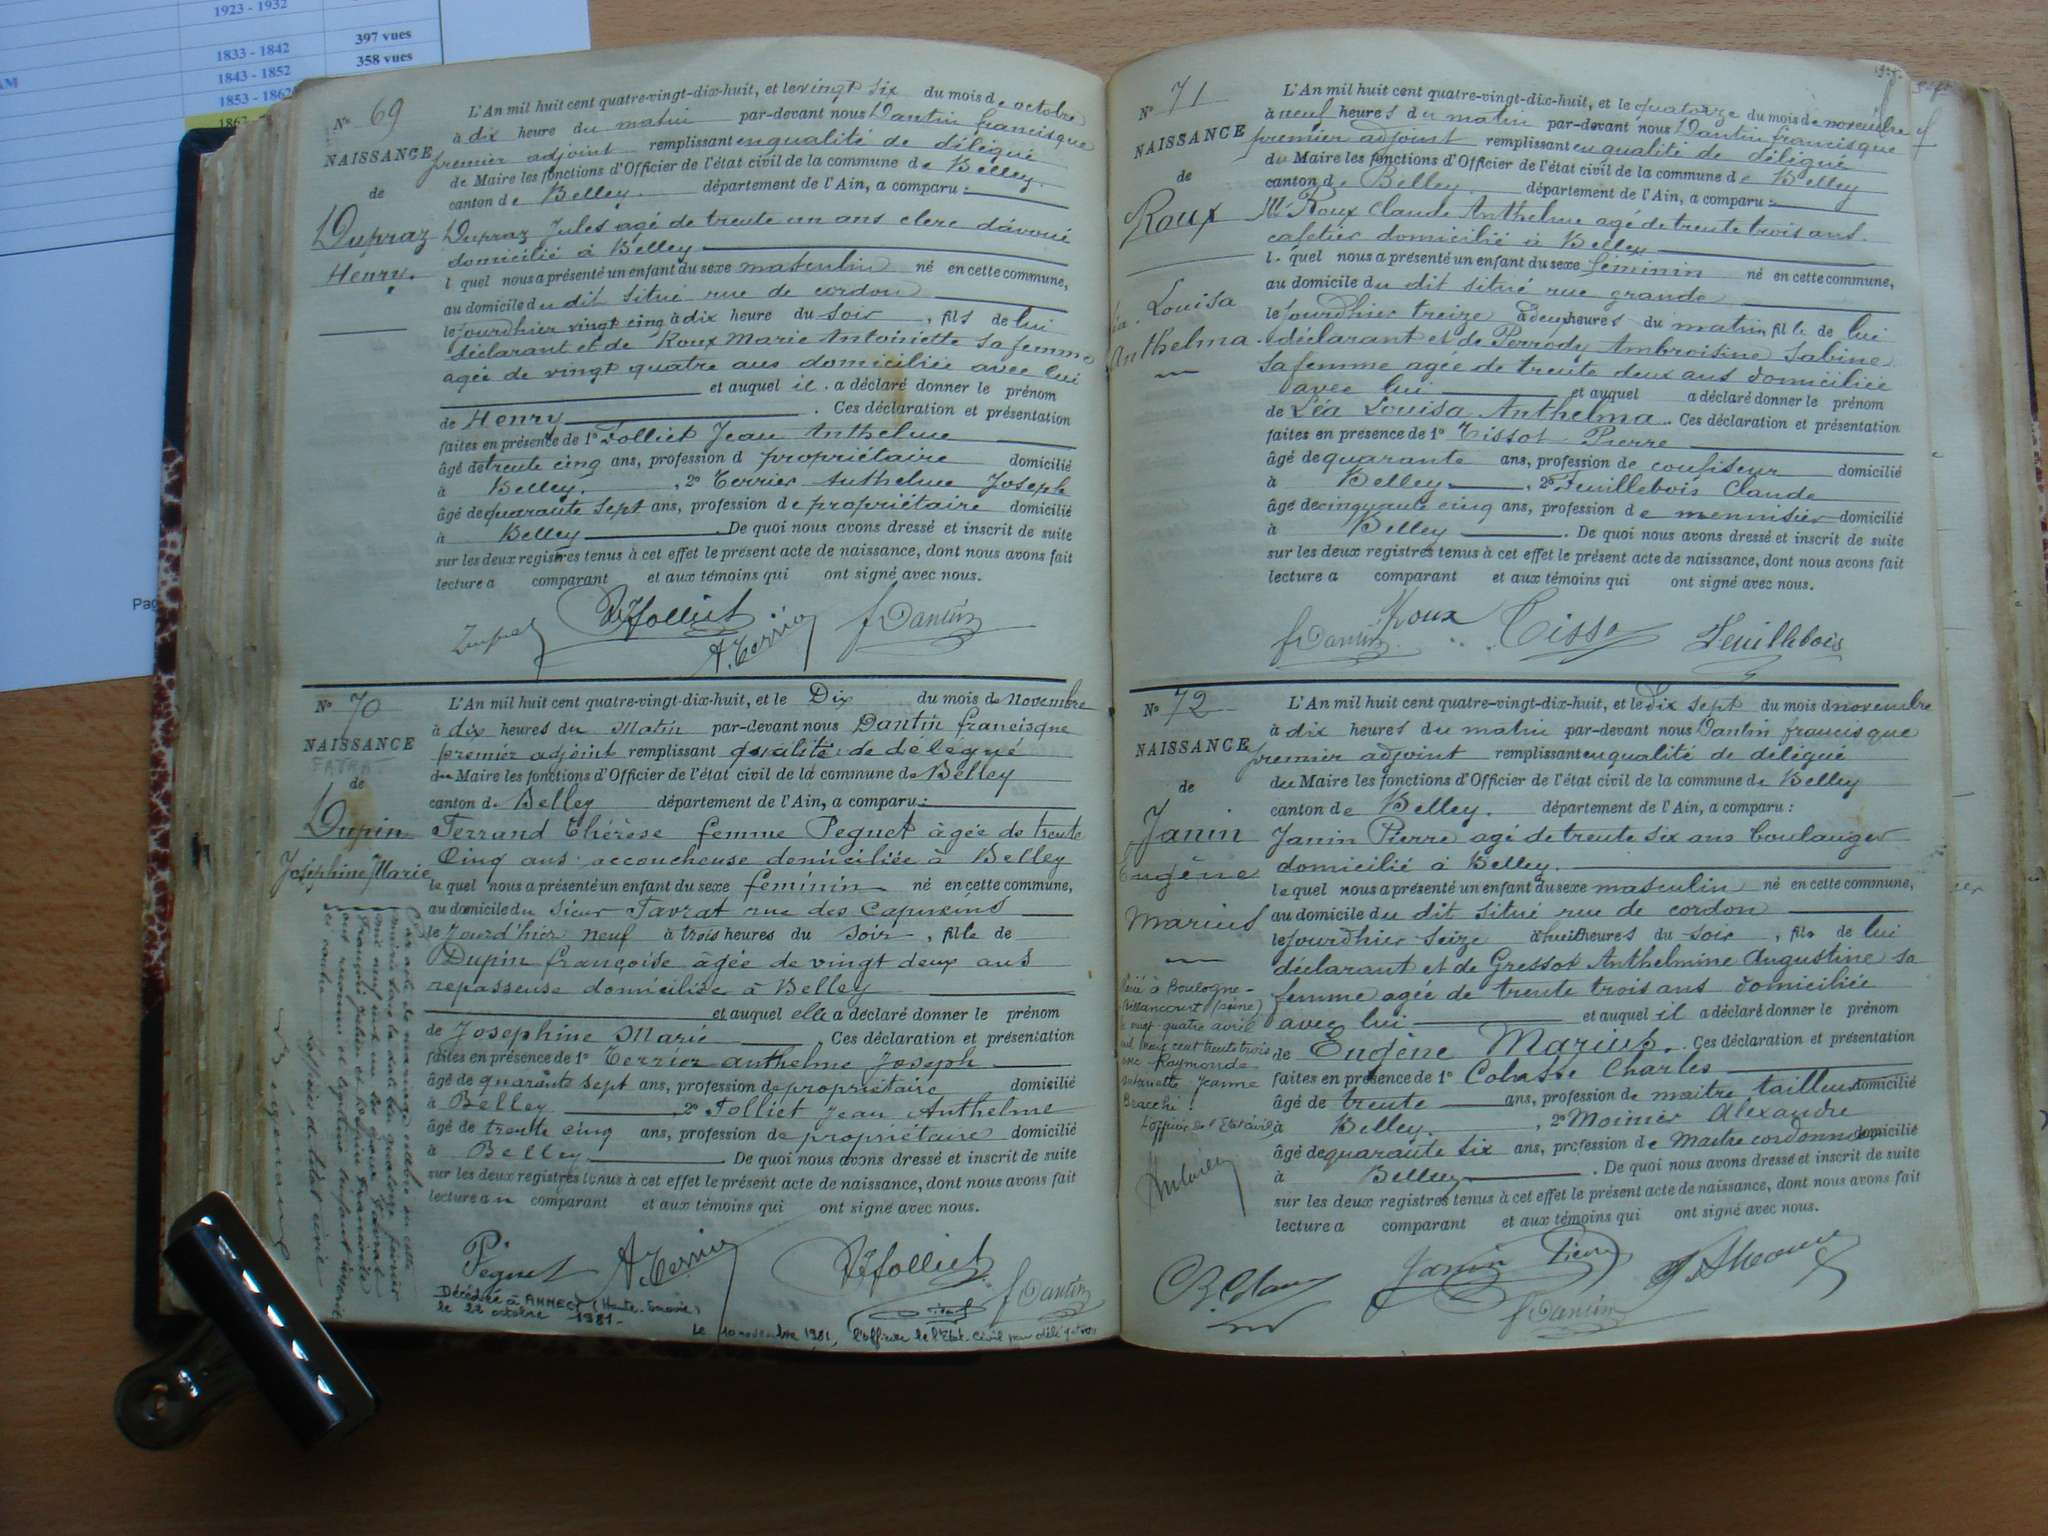 1923 - 1932
1833 - 1842 397 vues
1843 - 1852 358 vues
1853 - 1862
AM
Pag
N° 69
NAISSANCE
de
Dupraz
Henry.
L'An mil huit cent quatre-vingt-dix-huit, et le vingt six du mois de octobre
à dix heure du matin par-devant nous Dantin francisque
premier adjoint remplissant en qualité de délégué
de Maire les fonctions d'Officier de l'état civil de la commune de Belley
canton de Belley. département de l'Ain, a comparu :
Dupraz Jules agé de trente un ans clerc d'avoué
domicilié à Belley
l quel nous a présenté un enfant du sexe masculin né en cette commune,
au domicile du dit situé rue de cordon
le jourdhier vingt cinq à dix heure du soir, fils de lui
déclarant et de Roux Marie Antoinette sa femme
agée de vingt quatre ans domiciliée avec lui
et auquel il a déclaré donner le prénom
de Henry. Ces déclaration et présentation
faites en présence de 1° Folliet Jean Anthelme
âgé de trente cinq ans, profession d propriétaire domicilié
à Belley, 2° Terrier Anthelme Joseph
âgé de quarante sept ans, profession de propriétaire domicilié
à Belley. De quoi nous avons dressé et inscrit de suite
sur les deux registres tenus à cet effet le présent acte de naissance, dont nous avons fait
lecture a comparant et aux témoins qui ont signé avec nous.
Folliet
A. Terrier f Dantin
N° 70
NAISSANCE
FAVRAT
de
Dupin
Joséphine Marie
L'An mil huit cent quatre-vingt-dix-huit, et le Dix du mois de Novembre
à dix heures du Matin par-devant nous Dantin francisque
premier adjoint remplissant qualité de délégué
du Maire les fonctions d'Officier de l'état civil de la commune de Belley
canton de Belley département de l'Ain, a comparu :
Ferrand Thérèse femme Peguet âgée de trente
Cinq ans accoucheuse domiciliée à Belley
le quel nous a présenté un enfant du sexe féminin né en cette commune,
au domicile du sieur Favrat rue des Capucins
le Jourd'hier neuf à trois heures du soir, fille de
Dupin françoise âgée de vingt deux ans
repasseuse domiciliée à Belley
et auquel elle a déclaré donner le prénom
de Josephine Marie Ces déclaration et présentation
faites en présence de 1° Terrier anthelme Joseph
âgé de quarante sept ans, profession de propriétaire domicilié
à Belley, 2° Folliet Jean Anthelme
âgé de trente cinq ans, profession de propriétaire domicilié
à Belley. De quoi nous avons dressé et inscrit de suite
sur les deux registres tenus à cet effet le présent acte de naissance, dont nous avons fait
lecture a comparant et aux témoins qui ont signé avec nous.
Peguet A. Terrier Folliet f Dantin
Par acte de mariage célébré en cette
mairie sous la date du quatorze janvier
mil neuf cent un les époux Favrat
françois Julien et Dupin françoise
ont reconnu et légitimé l'enfant inscrit
ci contre
L'officier de l'état civil
Décédée à ANNECY (Haute-Savoie)
le 22 octobre 1981.
Le 10 novembre 1981, l'officier de l'Etat-Civil par délégation
N° 71
NAISSANCE
de
Roux
Léa Louisa
Anthelma
L'An mil huit cent quatre-vingt-dix-huit, et le quatorze du mois de novembre
à neuf heures du matin par-devant nous Dantin francisque
premier adjoint remplissant en qualité de délégué
du Maire les fonctions d'Officier de l'état civil de la commune de Belley
canton de Belley. département de l'Ain, a comparu :
Mr Roux Claude Anthelme agé de trente trois ans
cafetier domicilié à Belley
l. quel nous a présenté un enfant du sexe féminin né en cette commune,
au domicile du dit situé rue grande
le jourdhier treize à deux heures du matin, fille de lui
déclarant et de Perrody Ambroisine Sabine
sa femme agée de trente deux ans domiciliée
avec lui et auquel a déclaré donner le prénom
de Léa Louisa Anthelma. Ces déclaration et présentation
faites en présence de 1° Tissot Pierre
âgé de quarante ans, profession de confiseur domicilié
à Belley, 2° Feuillebois Claude
âgé de cinquante cinq ans, profession de menuisier domicilié
à Belley. De quoi nous avons dressé et inscrit de suite
sur les deux registres tenus à cet effet le présent acte de naissance, dont nous avons fait
lecture a comparant et aux témoins qui ont signé avec nous.
f Dantin Roux Tissot Feuillebois
N° 72
NAISSANCE
de
Janin
Eugène
Marius
L'An mil huit cent quatre-vingt-dix-huit, et le dix sept du mois de novembre
à dix heures du matin par-devant nous Dantin francisque
premier adjoint remplissant en qualité de délégué
du Maire les fonctions d'Officier de l'état civil de la commune de Belley
canton de Belley. département de l'Ain, a comparu :
Janin Pierre agé de trente six ans boulanger
domicilié à Belley.
le quel nous a présenté un enfant du sexe masculin né en cette commune,
au domicile du dit situé rue de cordon
le jourdhier seize à huit heures du soir, fils de lui
déclarant et de Gressot Anthelmine Augustine sa
femme agée de trente trois ans domiciliée
avec lui et auquel il a déclaré donner le prénom
de Eugène Marius. Ces déclaration et présentation
faites en présence de 1° Charles
âgé de trente ans, profession de maitre tailleur domicilié
à Belley., 2° Monnier Alexandre
âgé de quarante six ans, profession de Maitre cordonnier domicilié
à Belley. De quoi nous avons dressé et inscrit de suite
sur les deux registres tenus à cet effet le présent acte de naissance, dont nous avons fait
lecture a comparant et aux témoins qui ont signé avec nous.
Janin Pierre
f Dantin
Marié à Boulogne-
Billancourt (Seine)
le vingt-quatre avril
mil neuf cent trente trois
avec Raymonde
Jeanne
Bracchi.
L'officier de l'Etat civil,